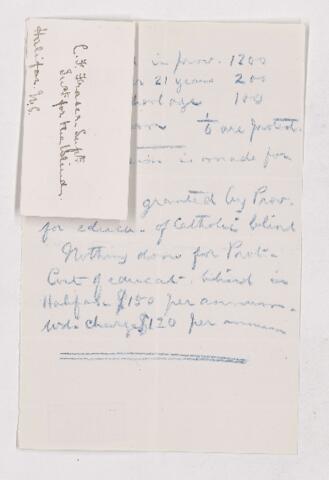 C. F. Fraser. Supt.
Inst for the Blind,
Halifax N.S.
in prov. 1200
21 years 200
age 100
1/6 are protest.
is made for
granted by Prov.
for educa. of Catholic blind
Nothing done for Prot.
Cost of educat. blind in
Halifax. $150 per annum.
wd. charge $120 per annum